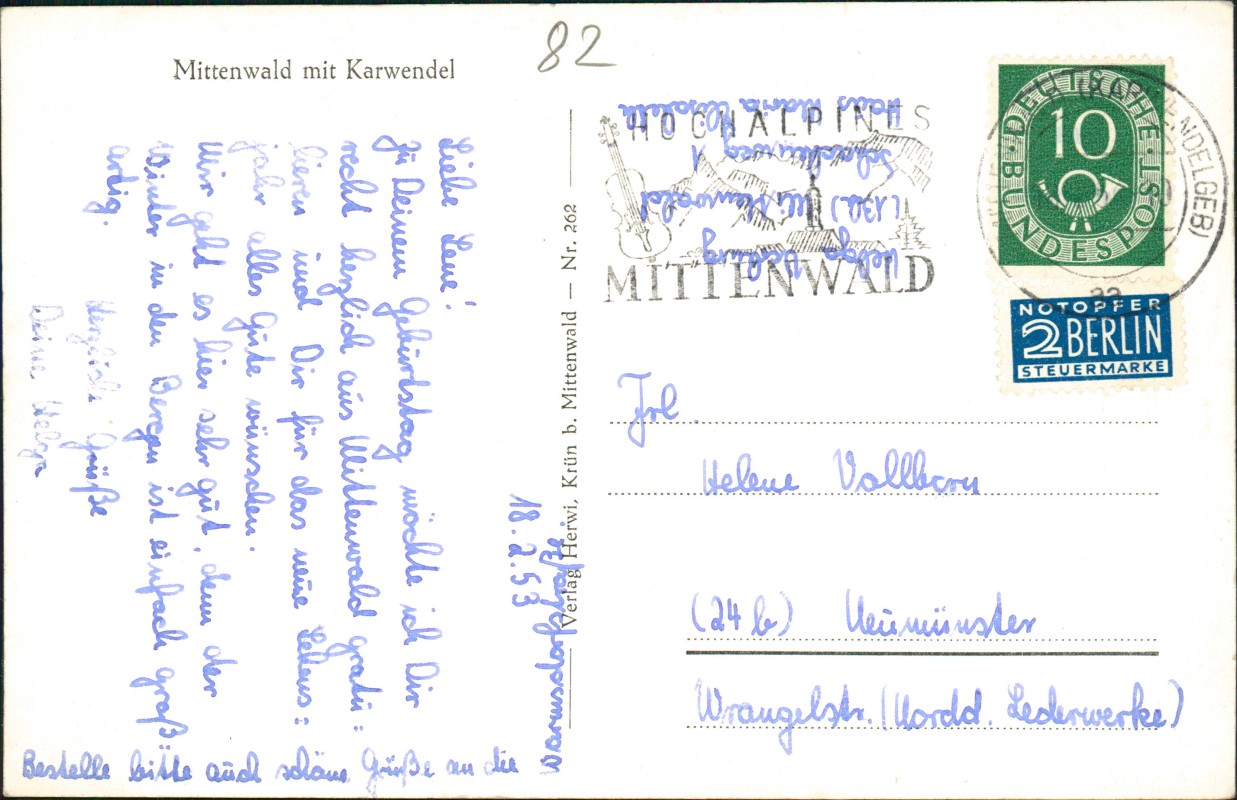 Mittenwald mit Karwendel
82
18.2.53
Liebe Lene!
Zu Deinem Geburtstag möchte ich Dir
recht herzlich aus Mittenwald gratu=
lieren und Dir für das neue Lebens=
jahr alles Gute wünschen.
Mir geht es hier sehr gut, denn der
Winter in den Bergen ist einfach groß=
artig.
Herzliche Grüße
Deine Helga
Bestelle bitte auch schöne Grüße an die
Warmsdorfstraße.
Verlag Herwi, Krün b. Mittenwald — Nr. 262
Helga
(13b) Mittenwald
Haus Maria Elisabeth
HOCHALPINES
MITTENWALD
(KARWENDELGEB)
DEUTSCHE BUNDESPOST
10
NOTOPFER
2 BERLIN
STEUERMARKE
Frl.
Helene Vollborn
(24b) Neumünster
Wrangelstr. (Nordd. Lederwerke)